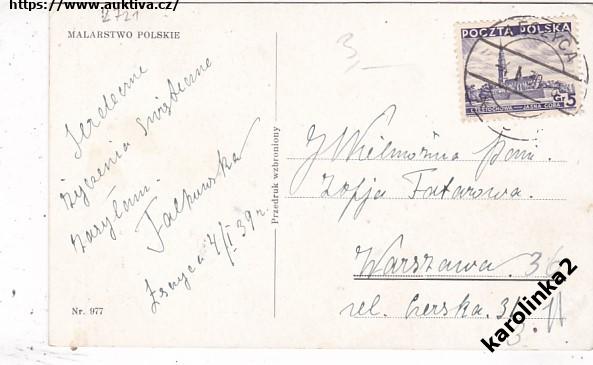 https://www.auktiva.cz/
2721
MALARSTWO POLSKIE
Serdeczne
życzenia świąteczne
zasyłam.
Falkowska
4/I 39 r.
Nr. 977
Przedruk wzbroniony
3,—
POCZTA POLSKA
CZĘSTOCHOWA — JASNA GÓRA
Gr 5
J Wielmożna Pani.
Zofja Fatarowa.
Warszawa. 36
ul. Czerska
karolinka2